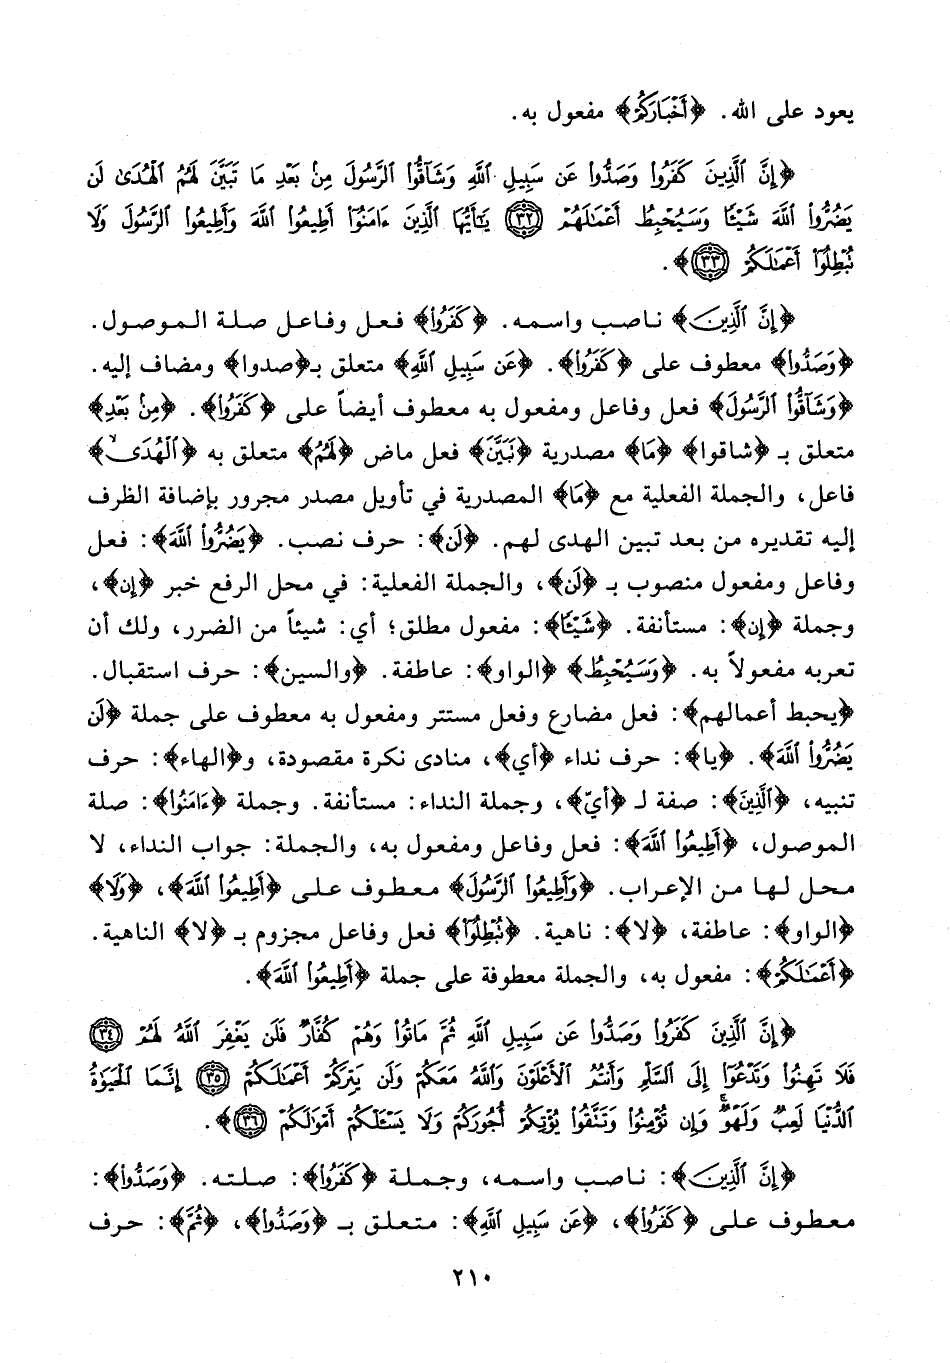 يعود على الله. ﴿أَخْبَارَكُمْ﴾ مفعول به.
﴿إِنَّ ٱلَّذِينَ كَفَرُوا۟ وَصَدُّوا۟ عَن سَبِيلِ ٱللَّهِ وَشَآقُّوا۟ ٱلرَّسُولَ مِنۢ بَعْدِ مَا تَبَيَّنَ لَهُمُ ٱلْهُدَىٰ لَن
يَضُرُّوا۟ ٱللَّهَ شَيْـًٔا وَسَيُحْبِطُ أَعْمَـٰلَهُمْ ٣٢ يَـٰٓأَيُّهَا ٱلَّذِينَ ءَامَنُوٓا۟ أَطِيعُوا۟ ٱللَّهَ وَأَطِيعُوا۟ ٱلرَّسُولَ وَلَا
تُبْطِلُوٓا۟ أَعْمَـٰلَكُمْ ٣٣﴾.
﴿إِنَّ ٱلَّذِينَ﴾ ناصب واسمه. ﴿كَفَرُوا۟﴾ فعل وفاعل صلة الموصول.
﴿وَصَدُّوا۟﴾ معطوف على ﴿كَفَرُوا۟﴾. ﴿عَن سَبِيلِ ٱللَّهِ﴾ متعلق بـ﴿صدوا﴾ ومضاف إليه.
﴿وَشَآقُّوا۟ ٱلرَّسُولَ﴾ فعل وفاعل ومفعول به معطوف أيضاً على ﴿كَفَرُوا۟﴾. ﴿مِنۢ بَعْدِ﴾
متعلق بـ ﴿شاقوا﴾ ﴿مَا﴾ مصدرية ﴿تَبَيَّنَ﴾ فعل ماض ﴿لَهُمُ﴾ متعلق به ﴿ٱلْهُدَىٰ﴾
فاعل، والجملة الفعلية مع ﴿مَا﴾ المصدرية في تأويل مصدر مجرور بإضافة الظرف
إليه تقديره من بعد تبين الهدى لهم. ﴿لَن﴾: حرف نصب. ﴿يَضُرُّوا۟ ٱللَّهَ﴾: فعل
وفاعل ومفعول منصوب بـ ﴿لَن﴾، والجملة الفعلية: في محل الرفع خبر ﴿إن﴾،
وجملة ﴿إن﴾: مستأنفة. ﴿شَيْـًٔا﴾: مفعول مطلق؛ أي: شيئاً من الضرر، ولك أن
تعربه مفعولاً به. ﴿وَسَيُحْبِطُ﴾ ﴿الواو﴾: عاطفة. ﴿والسين﴾: حرف استقبال.
﴿يحبط أعمالهم﴾: فعل مضارع وفعل مستتر ومفعول به معطوف على جملة ﴿لَن
يَضُرُّوا۟ ٱللَّهَ﴾. ﴿يا﴾: حرف نداء ﴿أي﴾، منادى نكرة مقصودة، و﴿الهاء﴾: حرف
تنبيه، ﴿ٱلَّذِينَ﴾: صفة لـ ﴿أيّ﴾، وجملة النداء: مستأنفة. وجملة ﴿ءَامَنُوا۟﴾: صلة
الموصول، ﴿أَطِيعُوا۟ ٱللَّهَ﴾: فعل وفاعل ومفعول به، والجملة: جواب النداء، لا
محل لها من الإعراب. ﴿وَأَطِيعُوا۟ ٱلرَّسُولَ﴾ معطوف على ﴿أَطِيعُوا۟ ٱللَّهَ﴾، ﴿وَلَا﴾
﴿الواو﴾: عاطفة، ﴿لا﴾: ناهية. ﴿تُبْطِلُوٓا۟﴾ فعل وفاعل مجزوم بـ ﴿لا﴾ الناهية.
﴿أَعْمَـٰلَكُمْ﴾: مفعول به، والجملة معطوفة على جملة ﴿أَطِيعُوا۟ ٱللَّهَ﴾.
﴿إِنَّ ٱلَّذِينَ كَفَرُوا۟ وَصَدُّوا۟ عَن سَبِيلِ ٱللَّهِ ثُمَّ مَاتُوا۟ وَهُمْ كُفَّارٌ فَلَن يَغْفِرَ ٱللَّهُ لَهُمْ ٣٤
فَلَا تَهِنُوا۟ وَتَدْعُوٓا۟ إِلَى ٱلسَّلْمِ وَأَنتُمُ ٱلْأَعْلَوْنَ وَٱللَّهُ مَعَكُمْ وَلَن يَتِرَكُمْ أَعْمَـٰلَكُمْ ٣٥ إِنَّمَا ٱلْحَيَوٰةُ
ٱلدُّنْيَا لَعِبٌ وَلَهْوٌ ۚ وَإِن تُؤْمِنُوا۟ وَتَتَّقُوا۟ يُؤْتِكُمْ أُجُورَكُمْ وَلَا يَسْـَٔلْكُمْ أَمْوَٰلَكُمْ ٣٦﴾.
﴿إِنَّ ٱلَّذِينَ﴾: ناصب واسمه، وجملة ﴿كَفَرُوا۟﴾: صلته. ﴿وَصَدُّوا۟﴾:
معطوف على ﴿كَفَرُوا۟﴾، ﴿عَن سَبِيلِ ٱللَّهِ﴾: متعلق بـ ﴿وَصَدُّوا۟﴾، ﴿ثُمَّ﴾: حرف
٢١٠